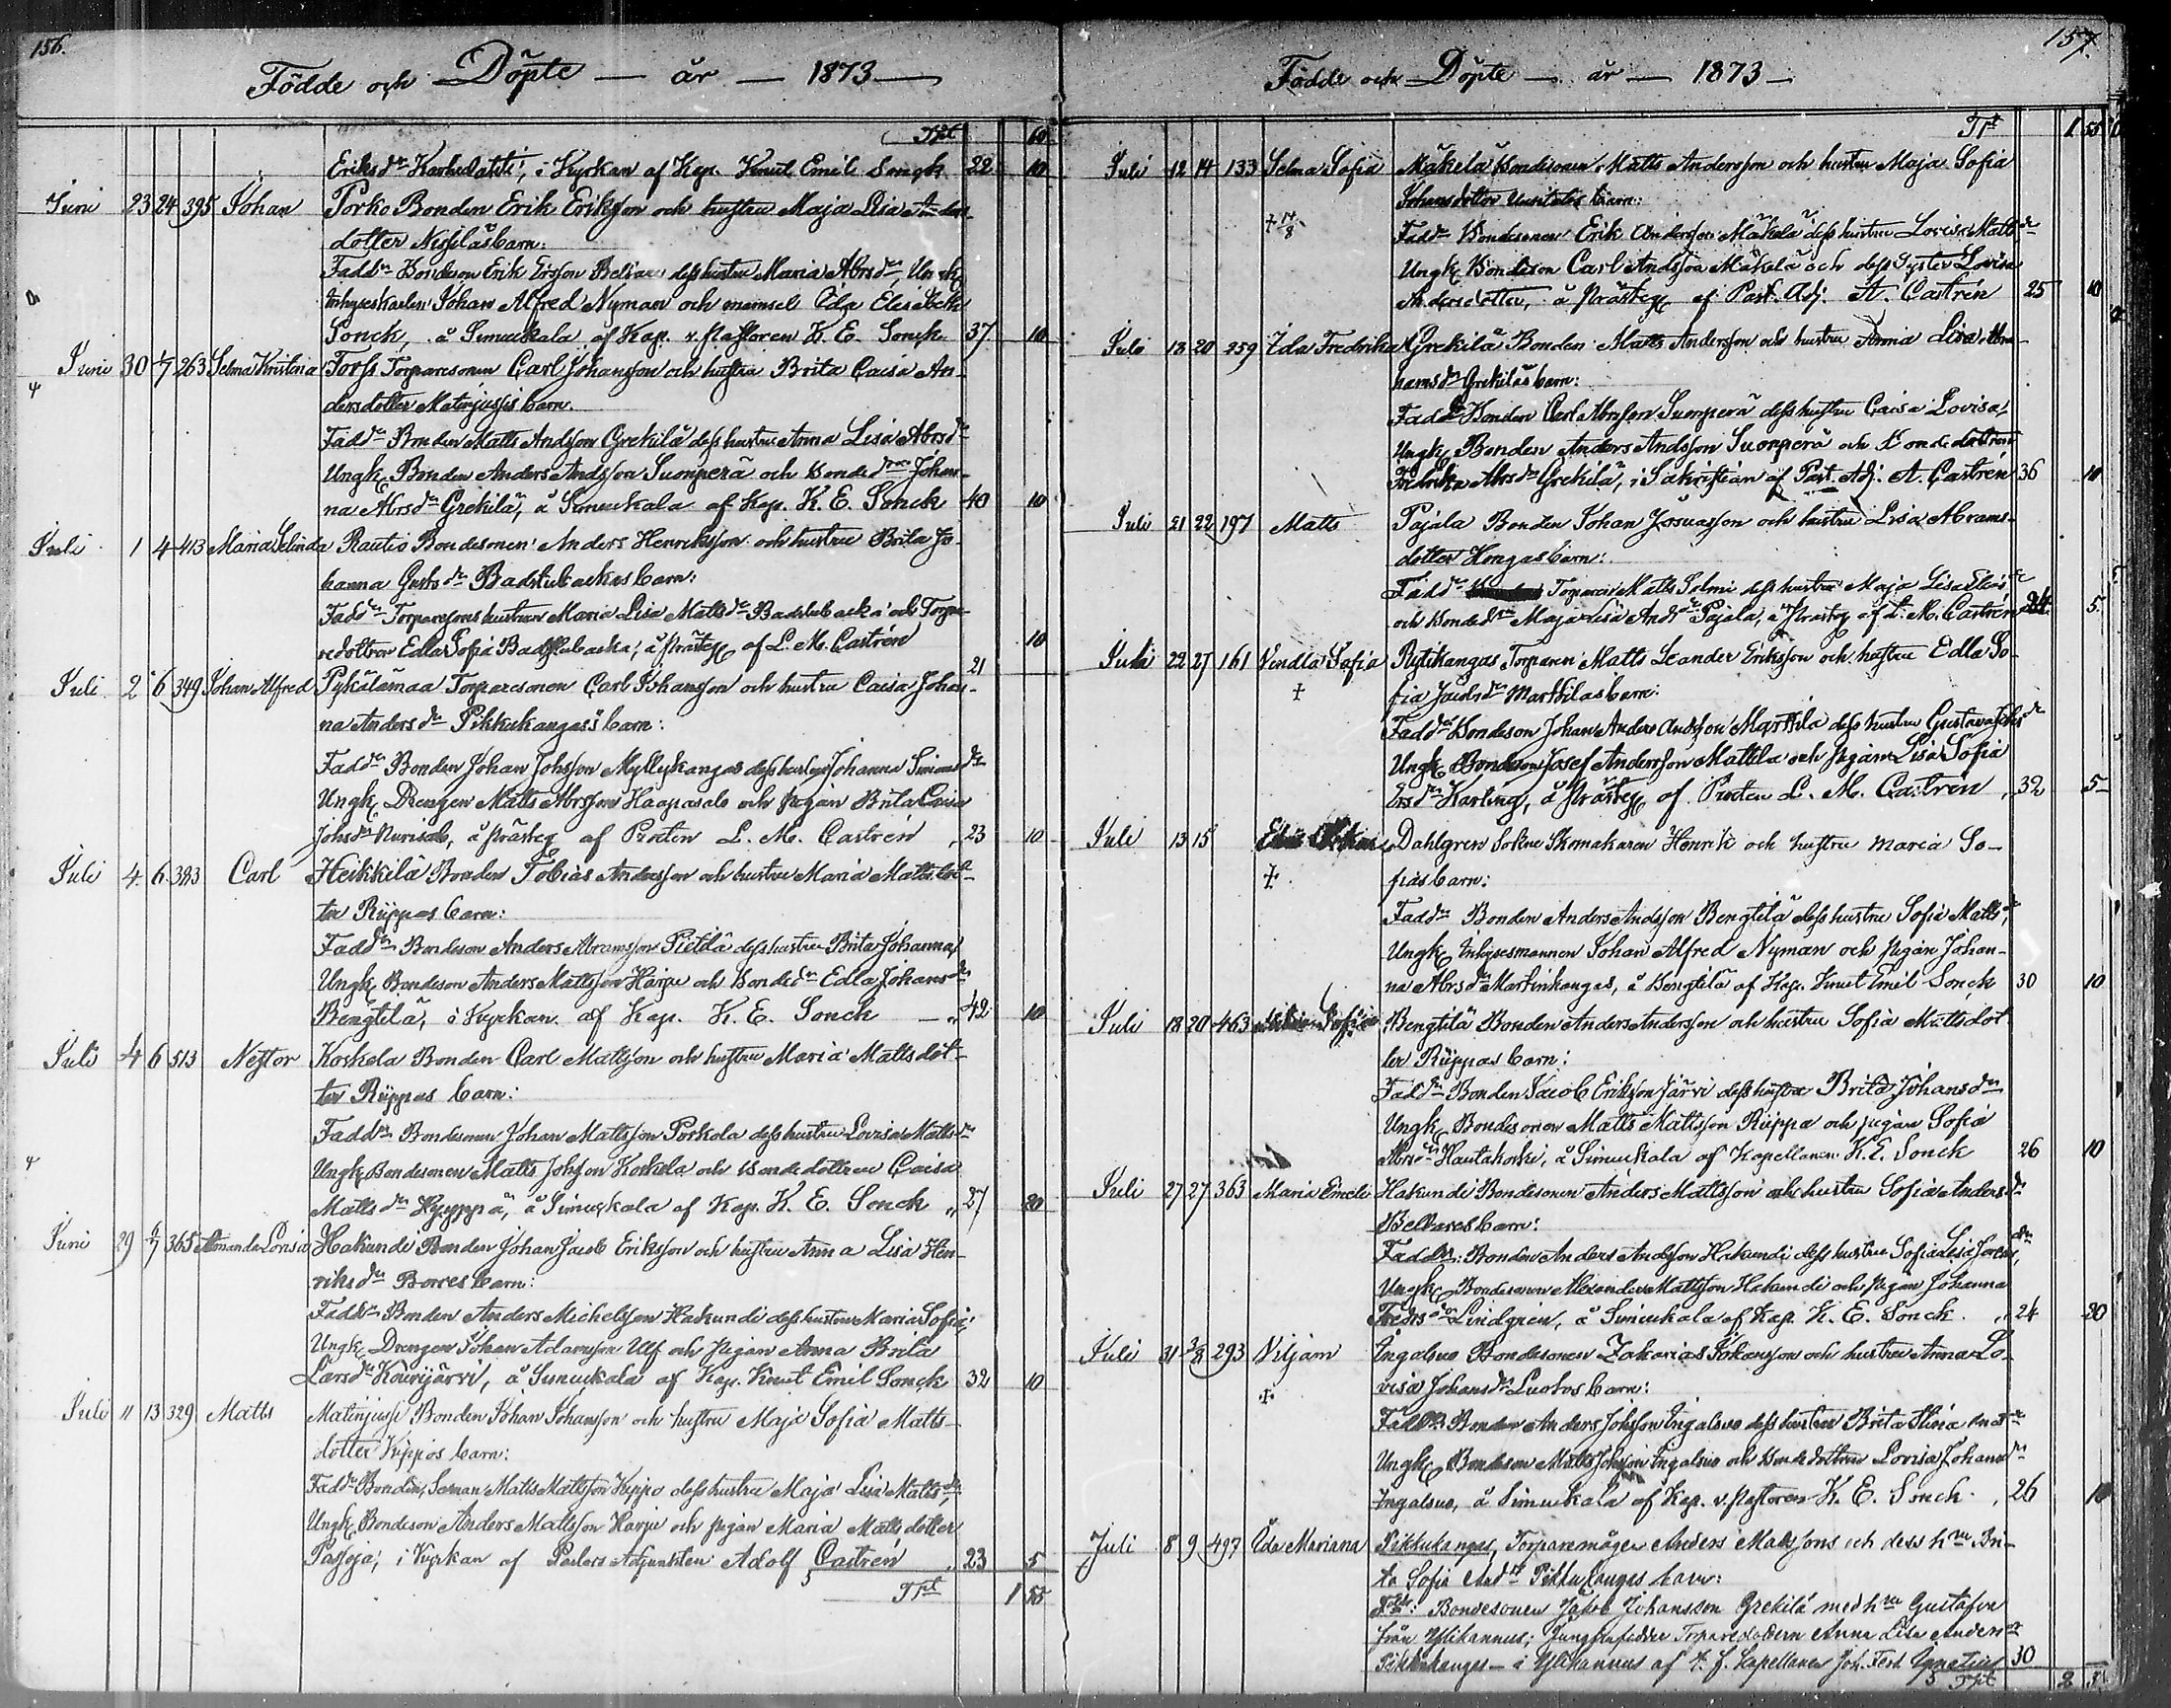 156.
Födde och Döpte — år — 1873 —
Tpt 60
Eriks dr Karhulahti, i Kyrkan af Kap. Knut Emil Sonck 22 10
Juni 23 24 395 Johan Porko Bonden Erik Eriksson och hustru Maja Lisa Anders
dotter Niskalas barn.
Fadd:r Bondeson Erik Ersson dess hustru Maria Abrs dr, Ungk.
Inhyseskarlen Johan Alfred Nyman och mamsel Ida Elisabeth
Sonck, å Simuckala af Kap. v. pastoren K. E. Sonck 37 10
Juni 30 1/7 263 Selma Kristina Torss Torparesonen Carl Johansson och hustru Brita Caisa An-
dersdotter Matinjussis barn.
Fadd:r Bonden Matts Andsson Grekilä dess hustru Anna Lisa Abrs dr
Ungk. Bonden Anders Andsson Suonperä och Bonde dren Johan-
na Abrs dr Grekilä, å Simuckala af Kap. K. E. Sonck 40 10
Juli 1 4 413 Maria Selinda Rautio Bondesonen Anders Henriksson och hustru Brita Jo-
hanna Gusts dr Badstubackas barn:
Fadd:r Torparesons hustrun Maria Lisa Matts dr Badstubacka och Torpa-
redottren Edla Sofia Badstubacka, å prästeg. af L. M. Castrén 21 10
Juli 2 6 349 Johan Alfred Pykälämaa Torparesonen Carl Johansson och hustru Caisa Johan-
na Anders dr Pikkukangas's barn:
Fadd:r Bonden Johan Johsson Myllykangas dess hustru Johanna Simons dr
Ungk. Drengen Matts Abrsson Haapasalo och pigan Brita Caisa
Johs dr Nurisalo, å prästeg. af Prosten L. M. Castrén 23 10
Juli 4. 6 383 Carl Heikkilä Bonden Tobias Andersson och hustru Maria Mattsdot-
ter Riippas barn:
Fadd:r Bondeson Anders Abramsson Pietilä dess hustru Brita Johanna,
Ungk. Bondeson Anders Mattsson Harju och Bonde dn Edla Johans dr
Bengtilä, i Kyrkan af Kap. K. E. Sonck — 42 10
Juli 4 6 513 Nestor Koskela Bonden Carl Mattsson och hustru Maria Mattsdot-
ter Riippas barn:
Fadd:r Bondesonen Johan Mattsson Porkola dess hustru Lovisa Matts dr
Ungk. Bondesonen Matts Johsson Koskela och Bondedottren Caisa
Matts dr Hyyppä, å Simuckala af Kap. K. E. Sonck 27 20
Juni 29 6/7 365 Amanda Lovisa Hakundi Bonden Johan Jacob Eriksson och hustru Anna Lisa Hen-
riks dr Borres barn:
Fadd:r Bonden Anders Michelsson Hakundi dess hustru Maria Sofia,
Ungk. Drengen Johan Adamsson Ulf och pigan Anna Brita
Lars dr Kourijärvi, å Simuckala af Kap. Knut Emil Sonck 32 10
Juli 11 13 329 Matts Matinjussi Bonden Johan Johansson och hustru Maja Sofia Matts-
dotter Kippos barn:
Fadd:r Bonden, Matts Mattsson Kippo dess hustru Maja Lisa Matts dr,
Ungk. Bondeson Anders Mattsson Harju och pigan Maria Mattsdotter
Passoja, i Kyrkan af Pastors Adjunkten Adolf Castrén 23 5
Tpt 1 55
157.
Födde och Döpte — år — 1873 —
Tpt 1 55
Juli 12 14 133 Selma Sofia Mäkelä Bondesonen Matts Andersson och hustru Maja Sofia
Johansdotter Uusitalos barn:
† 14/8 Fadd:r Bondesonen Erik Andersson Mäkelä dess hustru Lovisa Matts dr
Ungk. Bondeson Carl Andsson Mäkelä och dess syster Lovisa
Andersdotter, å prästeg. af Past. Adj. A. Castrén 25 10
Juli 18 20 259 Ida Fredrika Grekilä Bonden Matts Andersson och hustru Anna Lisa Abra-
hams dr Grekiläs barn:
Fadd:r Bonden Carl Abrsson Suonperä dess hustru Caisa Lovisa,
Ungk. Bonden Anders Andsson Suonperä och Bondedottren
Fredrika Abrs dr Grekilä, i Sakristian af Past. Adj. A. Castrén 36 10
Juli 21 22 197 Matts Pajala Bonden Johan Josuasson och hustru Lisa Abrams-
dotter Hongas barn:
Fadd:r Torparen Matts Salmi dess hustru Maja Lisa Elias dr
och Bonde drn Maja Lisa And dr Pajala, å Prästeg. af L. M. Castrén 24 5
Juli 22 27 161 Vendla Sofia Rytikangas Torparen Matts Leander Eriksson och hustru Edla So-
† fia Jacobs dr Marttilas barn:
Fadd:r Bondeson Johan Anders Andsson Marttila dess hustru Gustava Johs dr
Ungk. Bondeson Josef Andersson Mattila och pigan Lisa Sofia
Ers dr Karling, å prästeg. af Prosten L. M. Castrén 32 5
Juli 13 15 Dahlgren Sokne Skomakaren Henrik och hustru Maria So-
† fias barn:
Fadd:r Bonden Anders Andsson Bengtilä dess hustru Sofia Matts dr,
Ungk. Inhysesmannen Johan Alfred Nyman och pigan Johan-
na Abrs dr Martinkangas, å Bengtilä af Kap. Knut Emil Sonck 30 10
Juli 18 20 463 Sofia Bengtilä Bonden Anders Andersson och hustru Sofia Mattsdot
ter Riippas barn:
Fadd:r Bonden Jacob Eriksson Järvi dess hustru Brita Johans dr
Ungk. Bondesonen Matts Mattsson Riippa och pigan Sofia
Abrs dr Hautakoski, å Simuckala af Kapellanen K. E. Sonck 26 10
Juli 27 27 363 Maria Emelie Hakundi Bondesonen Anders Mattsson och hustru Sofia Anders dr
barn:
Fadd:r: Bonden Anders Andsson Hakundi dess hustru Sofia Lisa dr,
Ungk. Bondesonen Alexander Mattsson Hakundi och pigan Johanna
Fredrs dr Lindgren, å Simuckala af Kap. K. E. Sonck 24 20
Juli 31 3/8 293 Viljam Ingalsuo Bondesonen Zakarias Johansson och hustru Anna Lo-
† visa Johans dr Luotos barn:
Fadd:r Bonden Anders Johsson Ingalsuo dess hustru Brita Stina dr
Ungk. Bondeson Matts Johsson Ingalsuo och Bondedottren Lovisa Johans dr
Ingalsuo, å Simuckala af Kap. v. pastoren K. E. Sonck 26 10
Juli 8 9 497 Ida Mariana Pikkukangas, Torparemågen Anders Matssons och dess h:ru Bri-
ta Sofia And dr Pikkukangas barn:
Fadd: Bondesonen Jakob Johansson Grekilä med h:ru Gustafva
från Ylikannus; Jungfrufadder Torparedottern Anna Lisa Anders dr
Pikkukangas — i Ylikannus af t. f. Kapellanen Joh. Ferd. Ignatius 30
Tpt 2